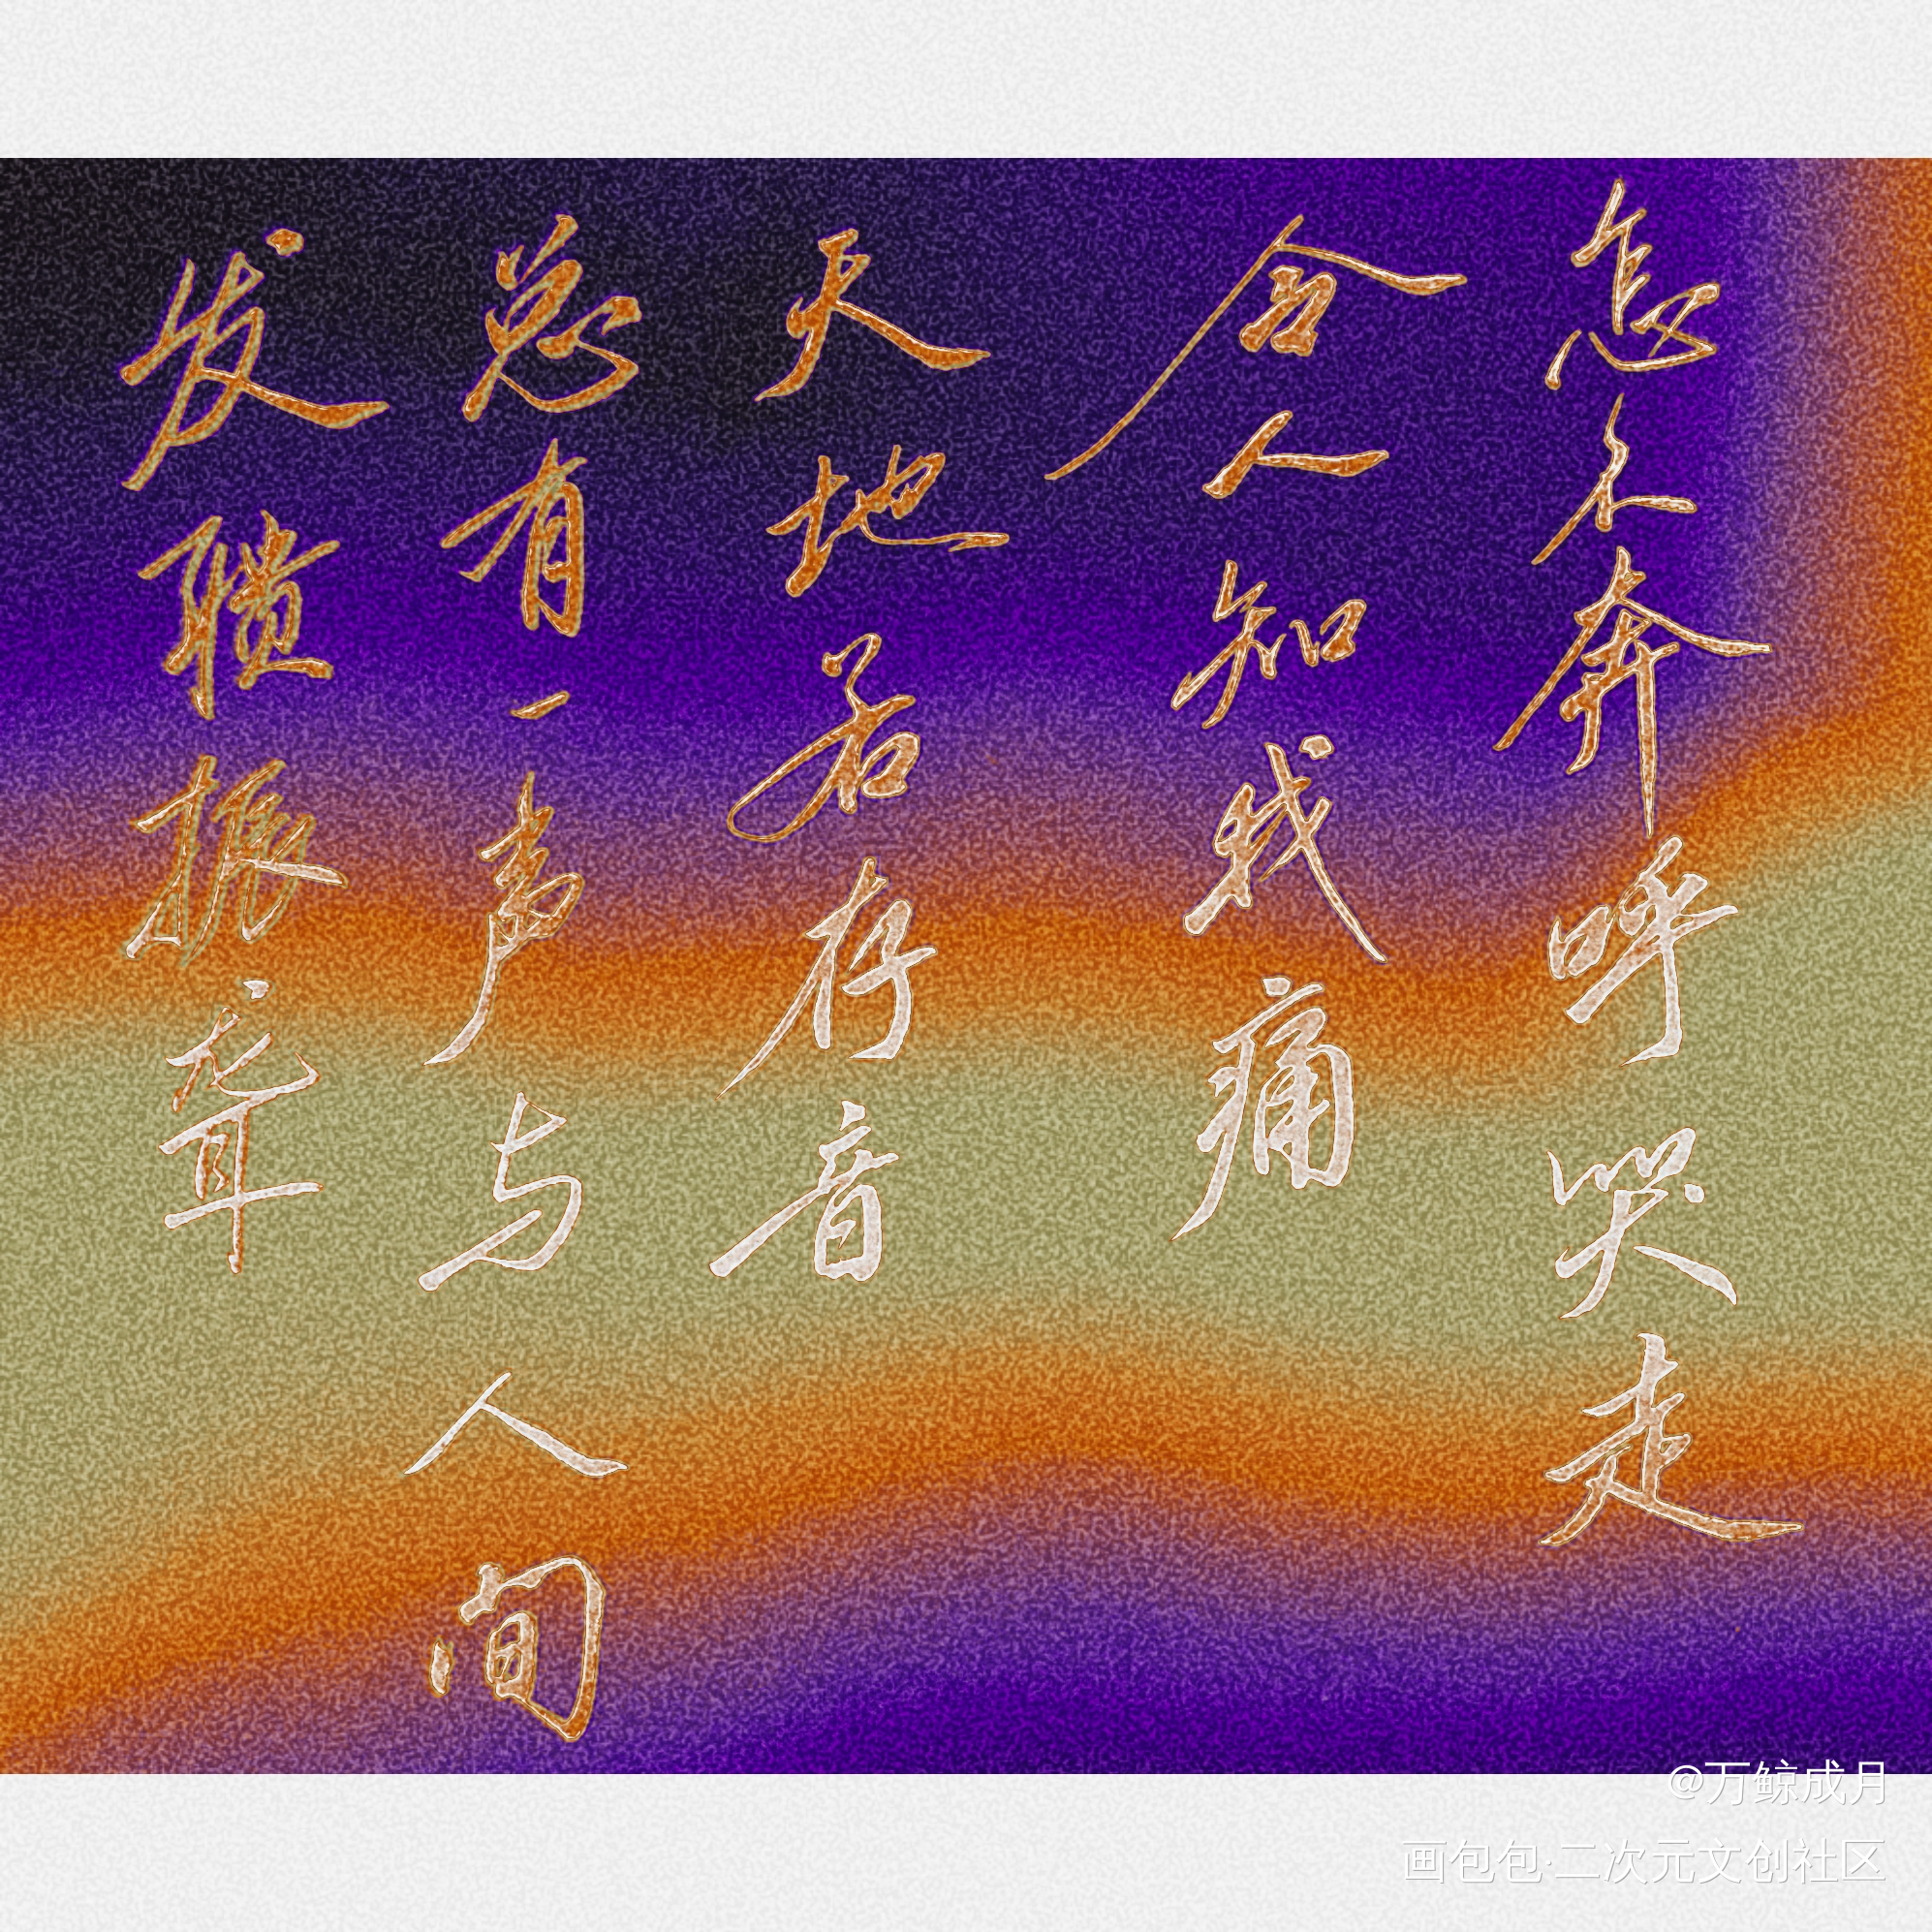 怎不奔呼哭走
令人知我痛
天地若存音
总有一声与人间
发聩振聋
@万鲸成月
画包包·二次元文创社区